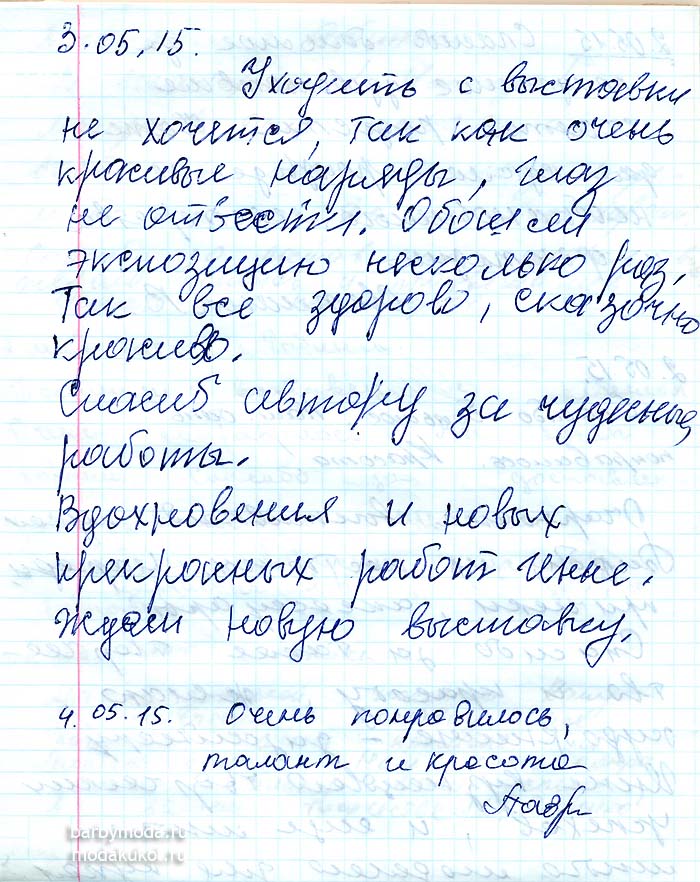 3.05.15.
Уходить с выставки
не хочется, так как очень
красивые наряды, глаз
не отвести. Обошли
экспозицию несколько раз.
Так все здорово, сказочно
красиво.
Спасиб автору за чудесные
работы.
Вдохновения и новых
прекрасных работ Инне.
Ждем новую выставку.
4.05.15. Очень понравилось,
талант и красота
barbymoda.ru
modakukol.ru